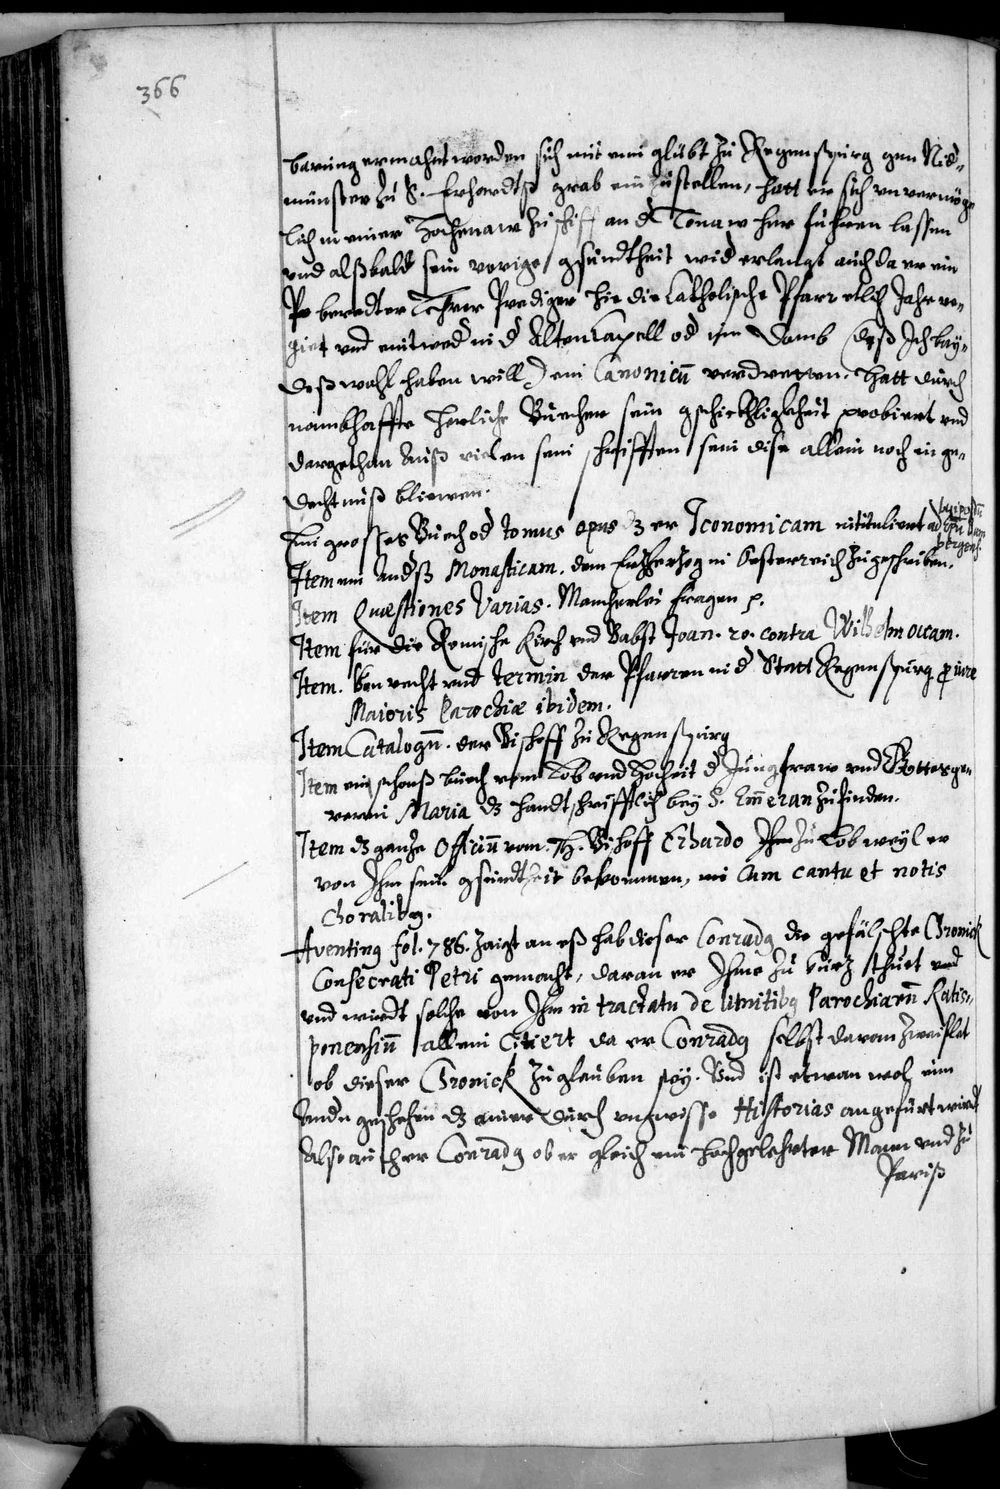 366
barung ermahnt worden sich mit eim glübt zu Regenspurg gen Nid-
münster zu S. Erhardts grab einzustellen, hatt er sich unvermög
lich in einer Zochenaw zu schiff an d Tonaw her führen lassen
und alßbald sein vorige gsundtheit wid erlangt auch da er ein
beredter Prediger hie die Catholische Pfarr etlich Jahr re-
giert und entwed in d Alten Capell od im Domb (deß Ich bay-
deß wohl haben will) ein Canonicu verdretten. Hatt durch
nambhaffte herliche Buecher sein gschickhligkheit probiert und
dargethan Auß vielen sein schrifften sein dise allein noch in ge-
dechtnuß bliewen.
Ein grosses Buech od tomus opus dz er Iconomicam intituliert ad
Item ein Andß Monasticam. dem Erzherzog in Oesterreich zugeschriben.
Item Quæstiones Varias. Mancherlei fragen
Item für die Römische Kirch und Babst Joan. 20. contra Wilhelm occam.
Item. Von recht und termin der Pfarren in d Statt Regenspurg
Maioris Parochiæ ibidem.
Item Catalogu. der Bischoff zu Regenspurg
Item ein schenß buech vom Lob und Hocheit d Jungfraw und Gottesge-
rerin Maria dz handtschrifftlich bey S. Emeran zu finden.
Item dz ganze Officiu vom. H. Bischoff Erhardo Ihm zu Lob weyl er
von Ihm sein gsundtheit bekommen, cum cantu et notis
choralibg.
Aventing fol. 786. zaigt an eß hab dieser Conradg die gefälschte Chronick
Consecrati Petri gemacht, daran er Ihme zu thuet und
und wirdt solche von Ihm in tractatu de limitibg Parochiaru Ratis-
ponensiu allein citiert da er Conradg selbst daran zweiflet
ob dieser Chronick zu glauben sey. Und ist etwan wol eim
Andn geschehen dz ainer durch ungwisse Historias angefürt wirdt
Also auch er Conradg ob er gleich ein hochgelehrter Mann und zu
Pariß